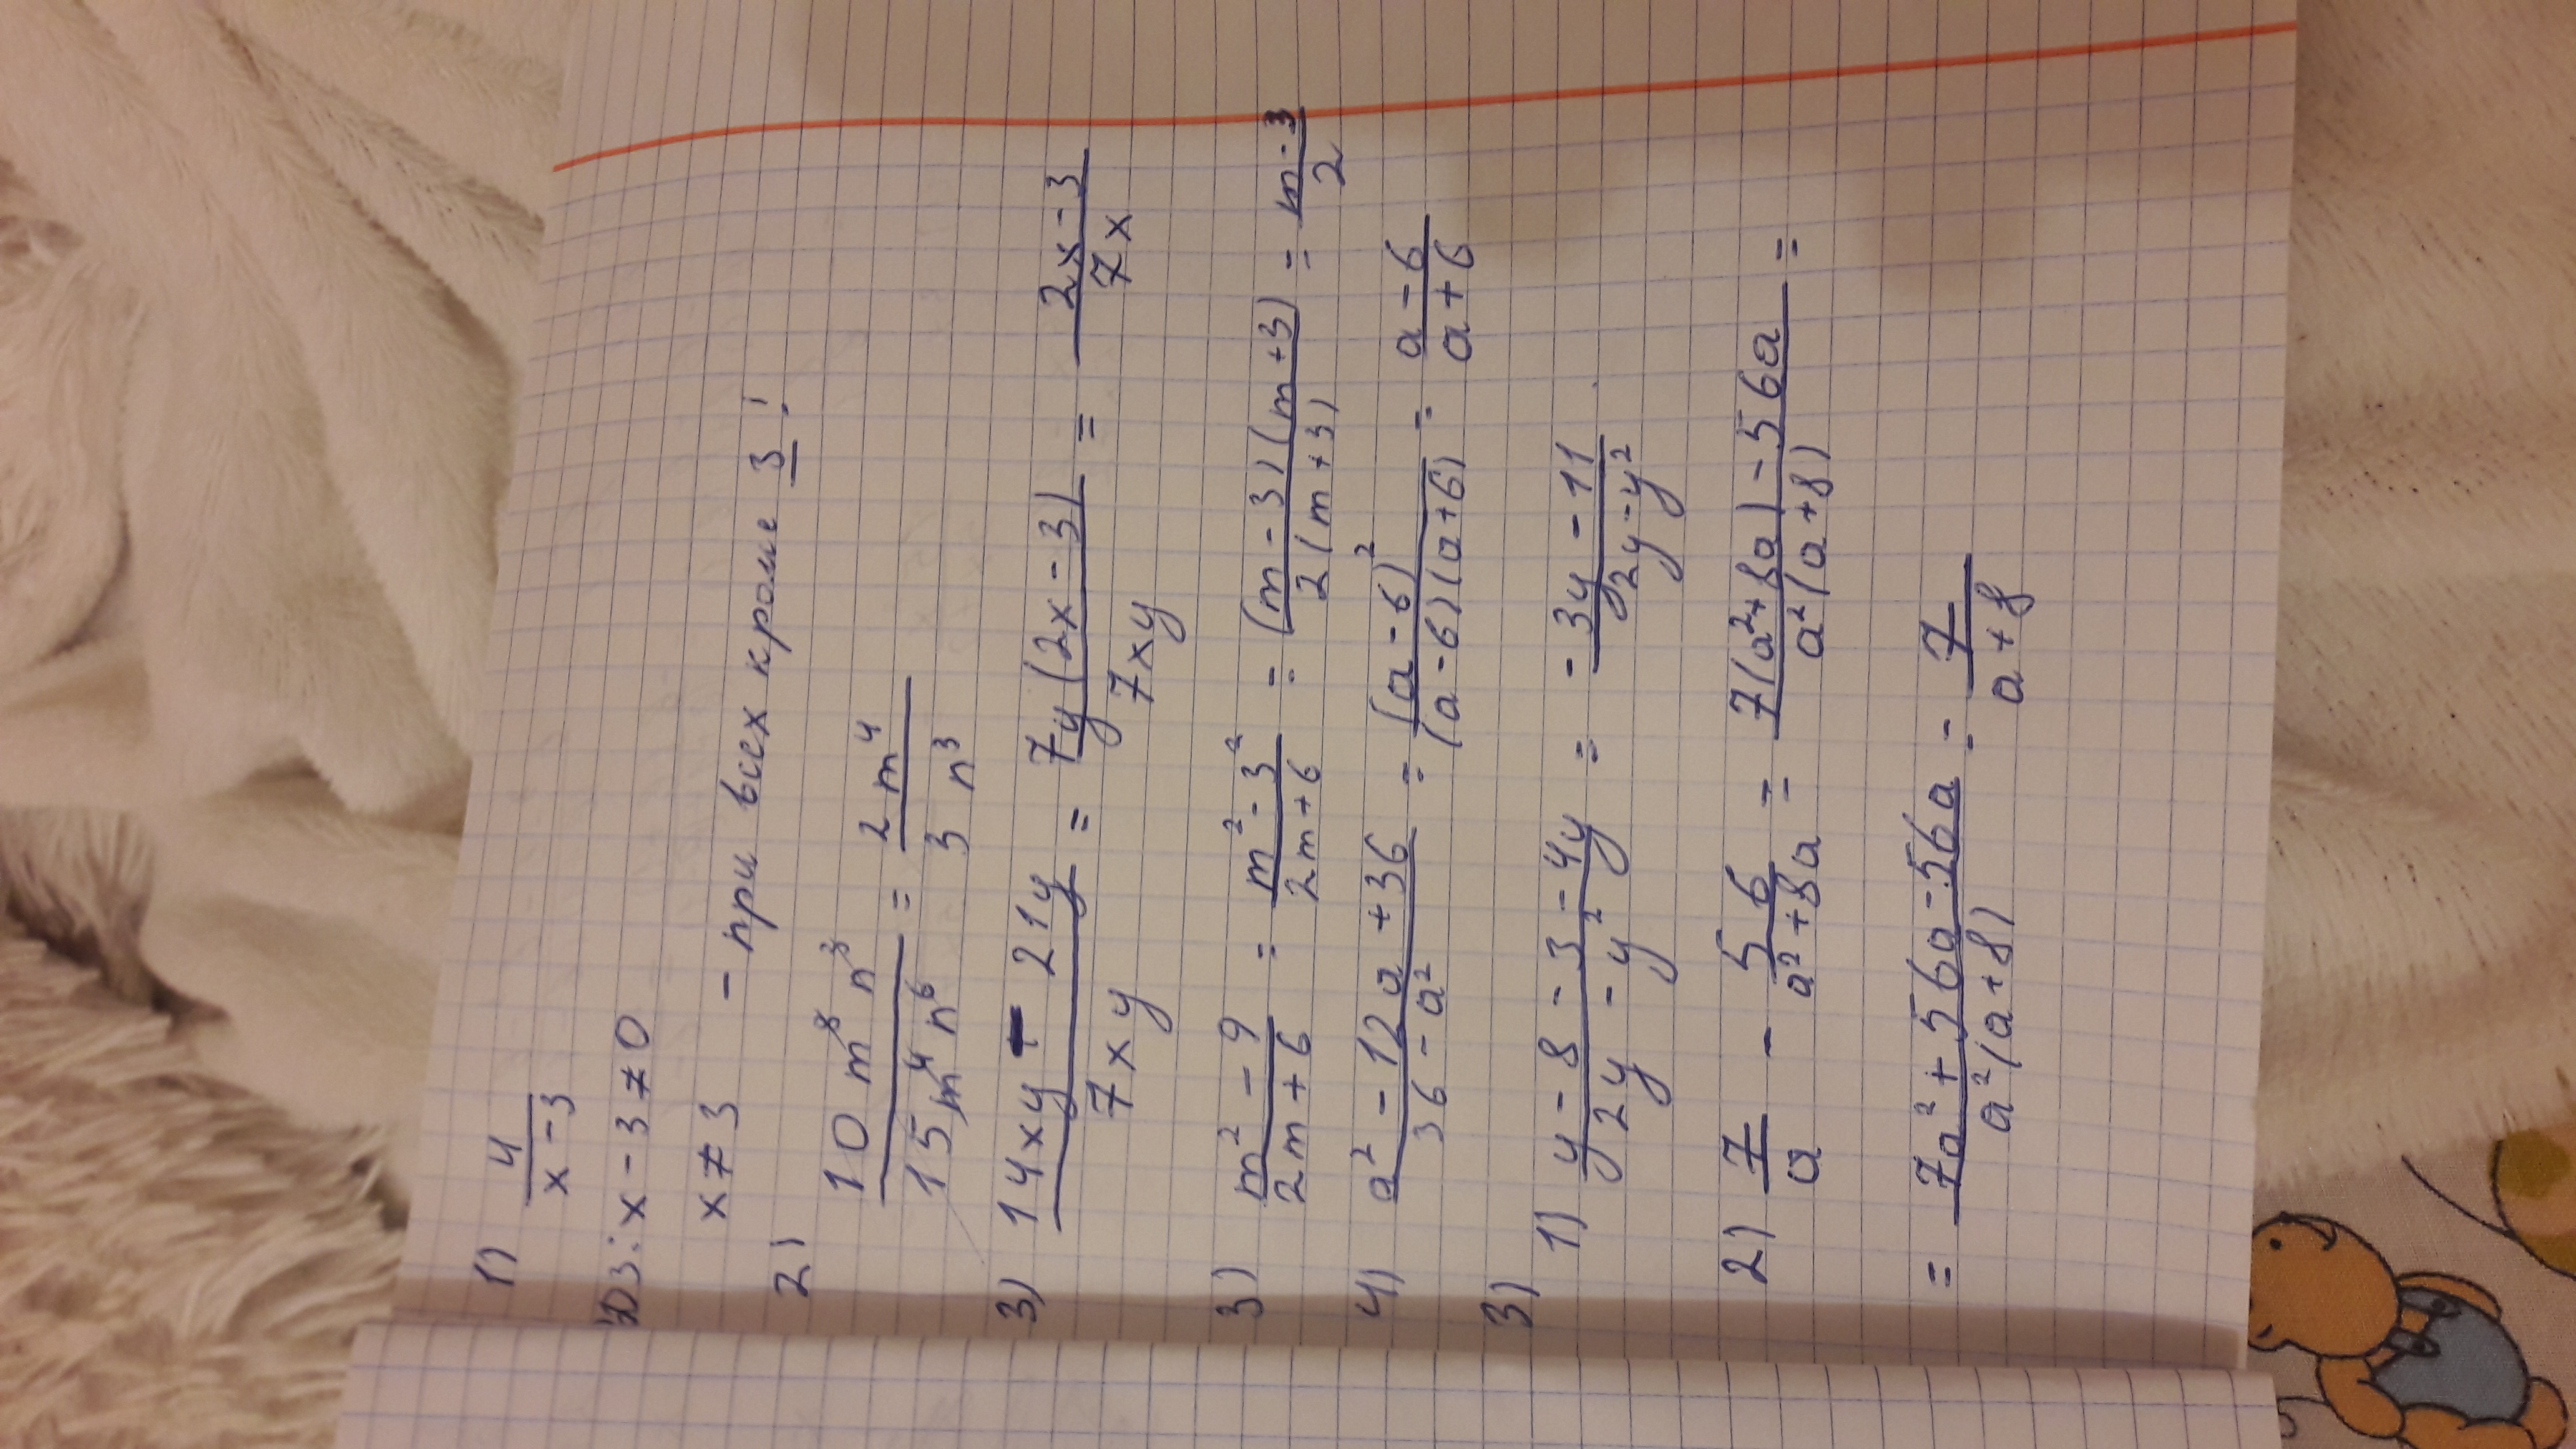 1) 4/(x-3)
ОДЗ: x-3≠0
x≠3 - при всех кроме 3!
2)
10m⁸n³/15m⁴n⁶ = 2m⁴/3n³
3) (14xy-21y)/7xy = 7y(2x-3)/7xy = (2x-3)/7x
3) (m²-9)/(2m+6) = (m²-3²)/(2m+6) = (m-3)(m+3)/2(m+3) = (m-3)/2
4) (a²-12a+36)/(36-a²) = (a-6)²/(a-6)(a+6) = (a-6)/(a+6)
3)
1) (y-8-3-4y)/(2y-y²) = -(3y-11)/(2y-y²)
2) 7/a - 56/(a²+8a) = (7(a²+8a)-56a)/a²(a+8) =
= (7a²+56a-56a)/a²(a+8) = 7/(a+8)